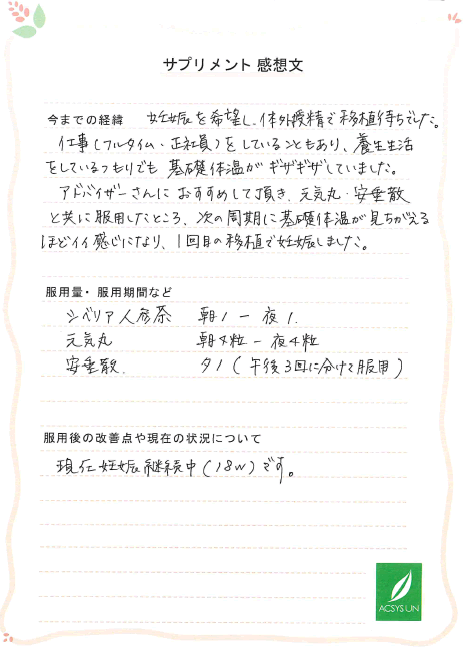 サプリメント 感想文
今までの経緯 妊娠を希望し、体外授精で移植待ちでした。
仕事(フルタイム・正社員)をしていることもあり、養生生活
をしているつもりでも 基礎体温が ギザギザしていました。
アドバイザーさんに おすすめして頂き、元気丸・安垂散
と共に服用したところ、次の周期に基礎体温が見ちがえる
ほどイイ感じになり、1回目の移植で妊娠しました。
服用量・服用期間など
シベリア人参茶 朝1 ー 夜1.
元気丸 朝4粒 ー 夜4粒
安垂散. 夕1 (午後3回に分けて服用)
服用後の改善点や現在の状況について
現在妊娠継続中(18w)です。
ACSYSUN